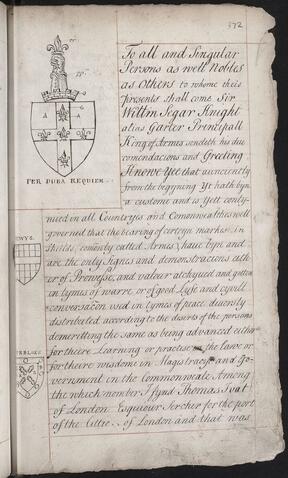 372
To all and Singular
Persons as well Nobles
as Others to whome these
presents shall come Sir
Willm Segar Knight
alias Garter Principall
King of Armes sendeth his due
comendacions and Greeting
Know Yet that auncientely
from the begining Yt hath byn
a custome and is yett conty-
PER DURA REQUIEM
nued in all Countryes and Comonwealthes well
governed that the bearing of certeyn markes in
shilds, comonly called Armes, have byn and
are the only Signes and demonstracions eith-
er of Prowesse, and valour atchyued and gotten
in tymes of warre, or of good Lyfe and cyvill
conversacon used in tymes of peace, diversly
distributed according to the deserts of the persons
demeritting the same as being advanced either
for theere Learning or practise in the Lawe or
for theire wisdome in Magistracy and Go-
vernment in the Commonweale Among
the which nomber I fynd Thomas
of London Esquiour Sercher for the port
of the Cittie of London and that was